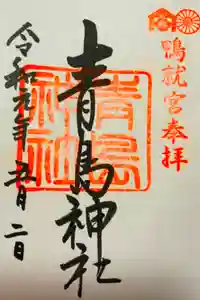 鴨就宮奉拝
青島神社
青島神社
令和元年五月二日